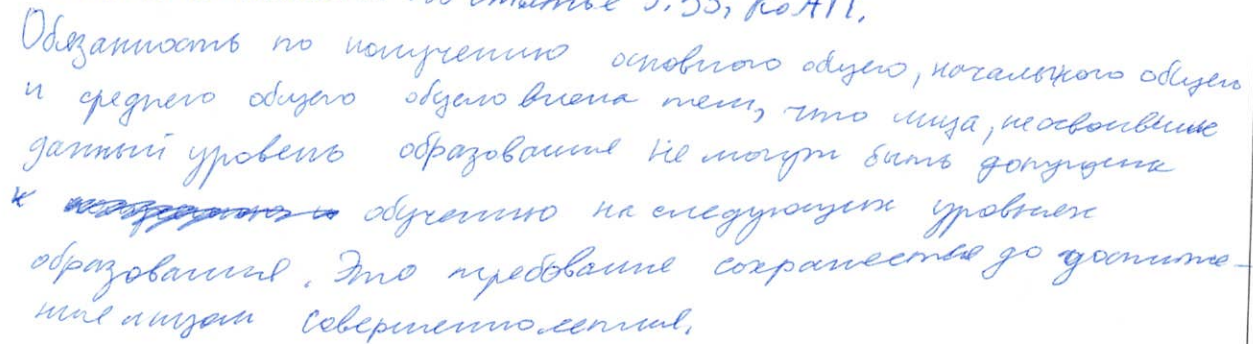 по статье 5.35, КоАП.
Обязанность по получению основного общего, начального общего
и среднего общего обусловлена тем, что лица, не освоившие
данный уровень образования не могут быть допущены
к обучению на следующих уровнях
образования. Это требование сохраняется до достиже-
ние лицом совершеннолетия.